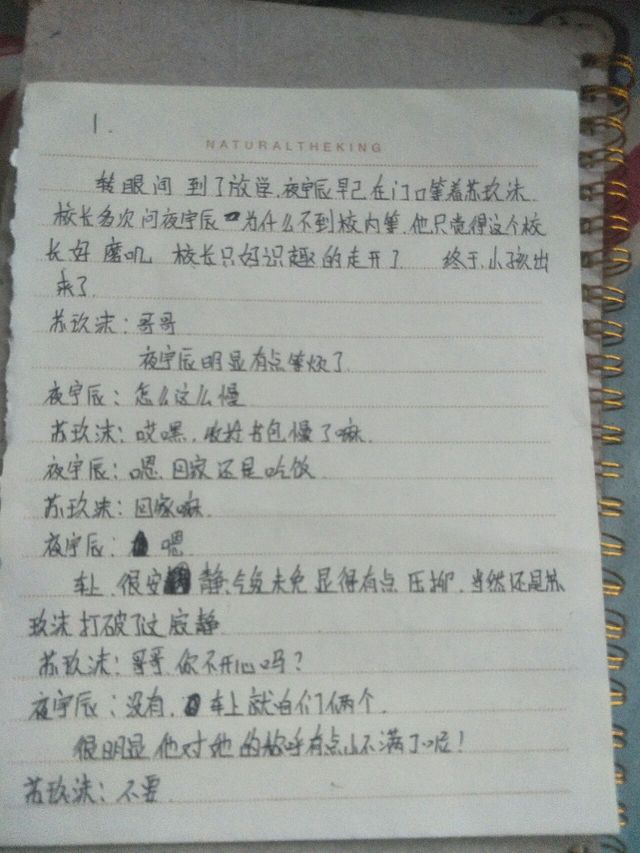 1.
NATURALTHEKING
转眼间 到了放学,夜宇辰早已在门口等着苏玖沫.
校长多次问夜宇辰 为什么不到校内等,他只觉得这个校
长好磨叽 校长只好识趣的走开了 终于,小孩出
来了
苏玖沫:哥哥
夜宇辰明显有点等烦了
夜宇辰:怎么这么慢
苏玖沫:哎嘿,收拾书包慢了嘛.
夜宇辰:嗯.回家还是吃饭
苏玖沫:回家嘛.
夜宇辰:嗯
车上.很安静,气氛未免显得有点压抑.当然还是苏
玖沫打破了这寂静
苏玖沫:哥哥.你不开心吗?
夜宇辰:没有,车上就咱们俩个.
很明显他对她的称呼有点小不满了呢!
苏玖沫:不要